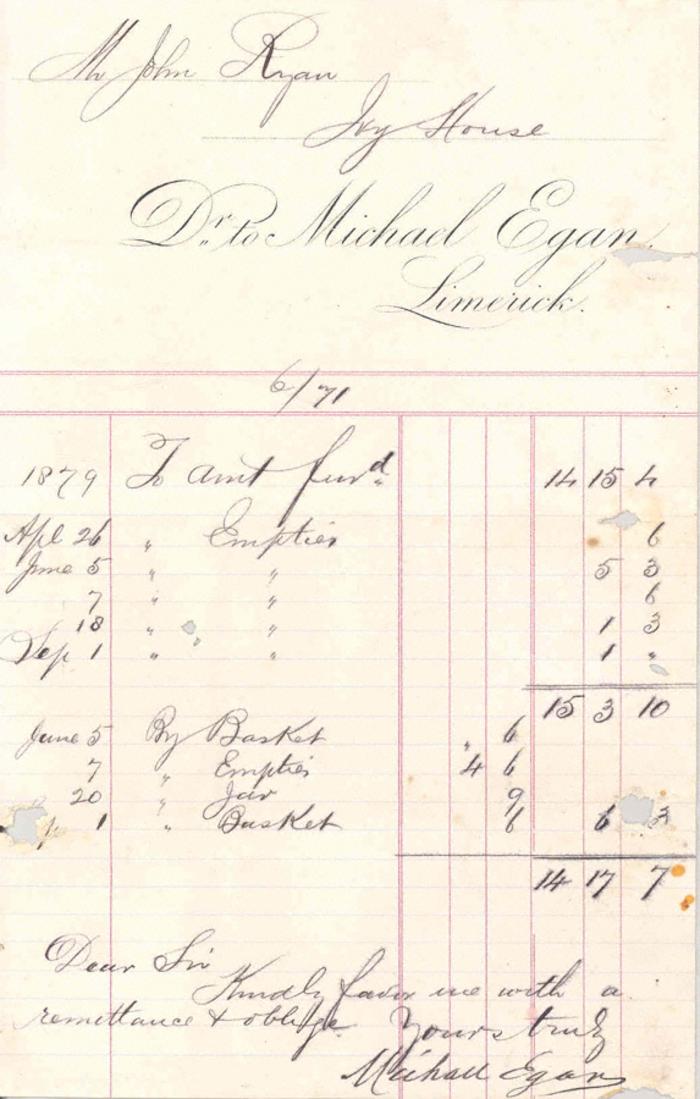 Mr John Ryan
Ivy House
Dr. to Michael Egan.
Limerick.
6/71
1879 To amt furd 14 15 4
Apl 26 " Empties 6
June 5 " " 5 3
7 " " 6
18 " " 1 3
Sep 1 " " 1 "
15 3 10
June 5 By Basket " 6
7 " Empties 4 6
20 " Jar 9
1 " Basket 6 6 3
14 17 7
Dear Sir
Kindly favor me with a
remittance & oblige Yours truly
Michael Egan